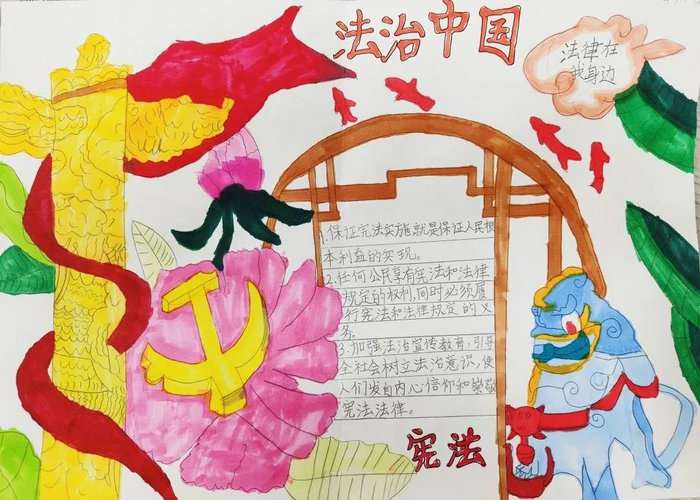 法治中国
法律在
我身边
1.保证宪法实施,就是保证人民根
本利益的实现。
2.任何公民享有宪法和法律
规定的权利,同时必须履
行宪法和法律规定的义
务。
3.加强法治宣传教育,引导
全社会树立法治意识,使
人们发自内心信仰和崇敬
宪法法律。
宪法